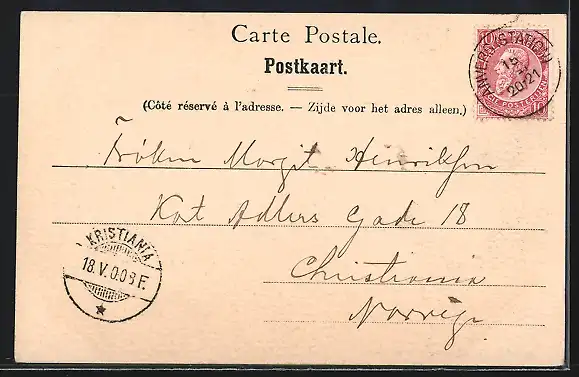 Carte Postale.
Postkaart.
(Côté réservé à l'adresse. — Zijde voor het adres alleen.)
ANVERS (STATION)
15
20-21
10
Frøken Margit Henriksen
Kort Adlers Gade 18
Christiania
Norvége
KRISTIANIA
18.V.00 8 F.